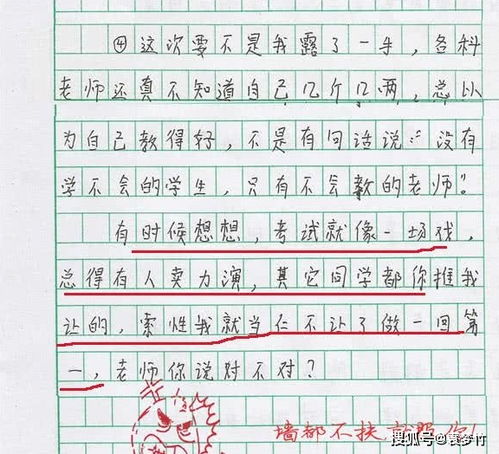 ④这次要不是我露了一手，各科
老师还真不知道自己几斤几两，总以
为自己教得好，不是有句话说："没有
学不会的学生，只有不会教的老师"。
有时候想想，考试就像一场戏，
总得有人卖力演，其它同学都你推我
让的，索性我就当仁不让了做一回第
一，老师你说对不对？
墙都不扶，就服你！
搜狐号@袁梦竹